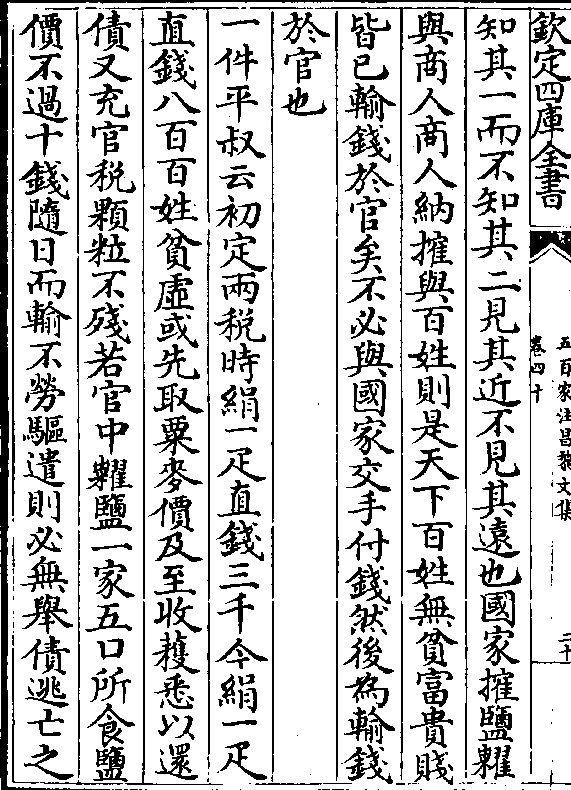 欽定四庫全書
五百家注昌黎文集
卷四十
二十
知其一而不知其二見其近不見其遠也國家搉鹽糶
與商人商人納搉與百姓則是天下百姓無貧富貴賤
皆已輸錢於官矣不必與國家交手付錢然後為輸錢
於官也
一件平叔云初定兩税時絹一疋直錢三千今絹一疋
直錢八百百姓貧虚或先取粟麥價及至收穫悉以還
債又充官税顆粒不殘若官中糶鹽一家五口所食鹽
價不過十錢隨日而輸不勞驅遣則必無舉債逃亡之